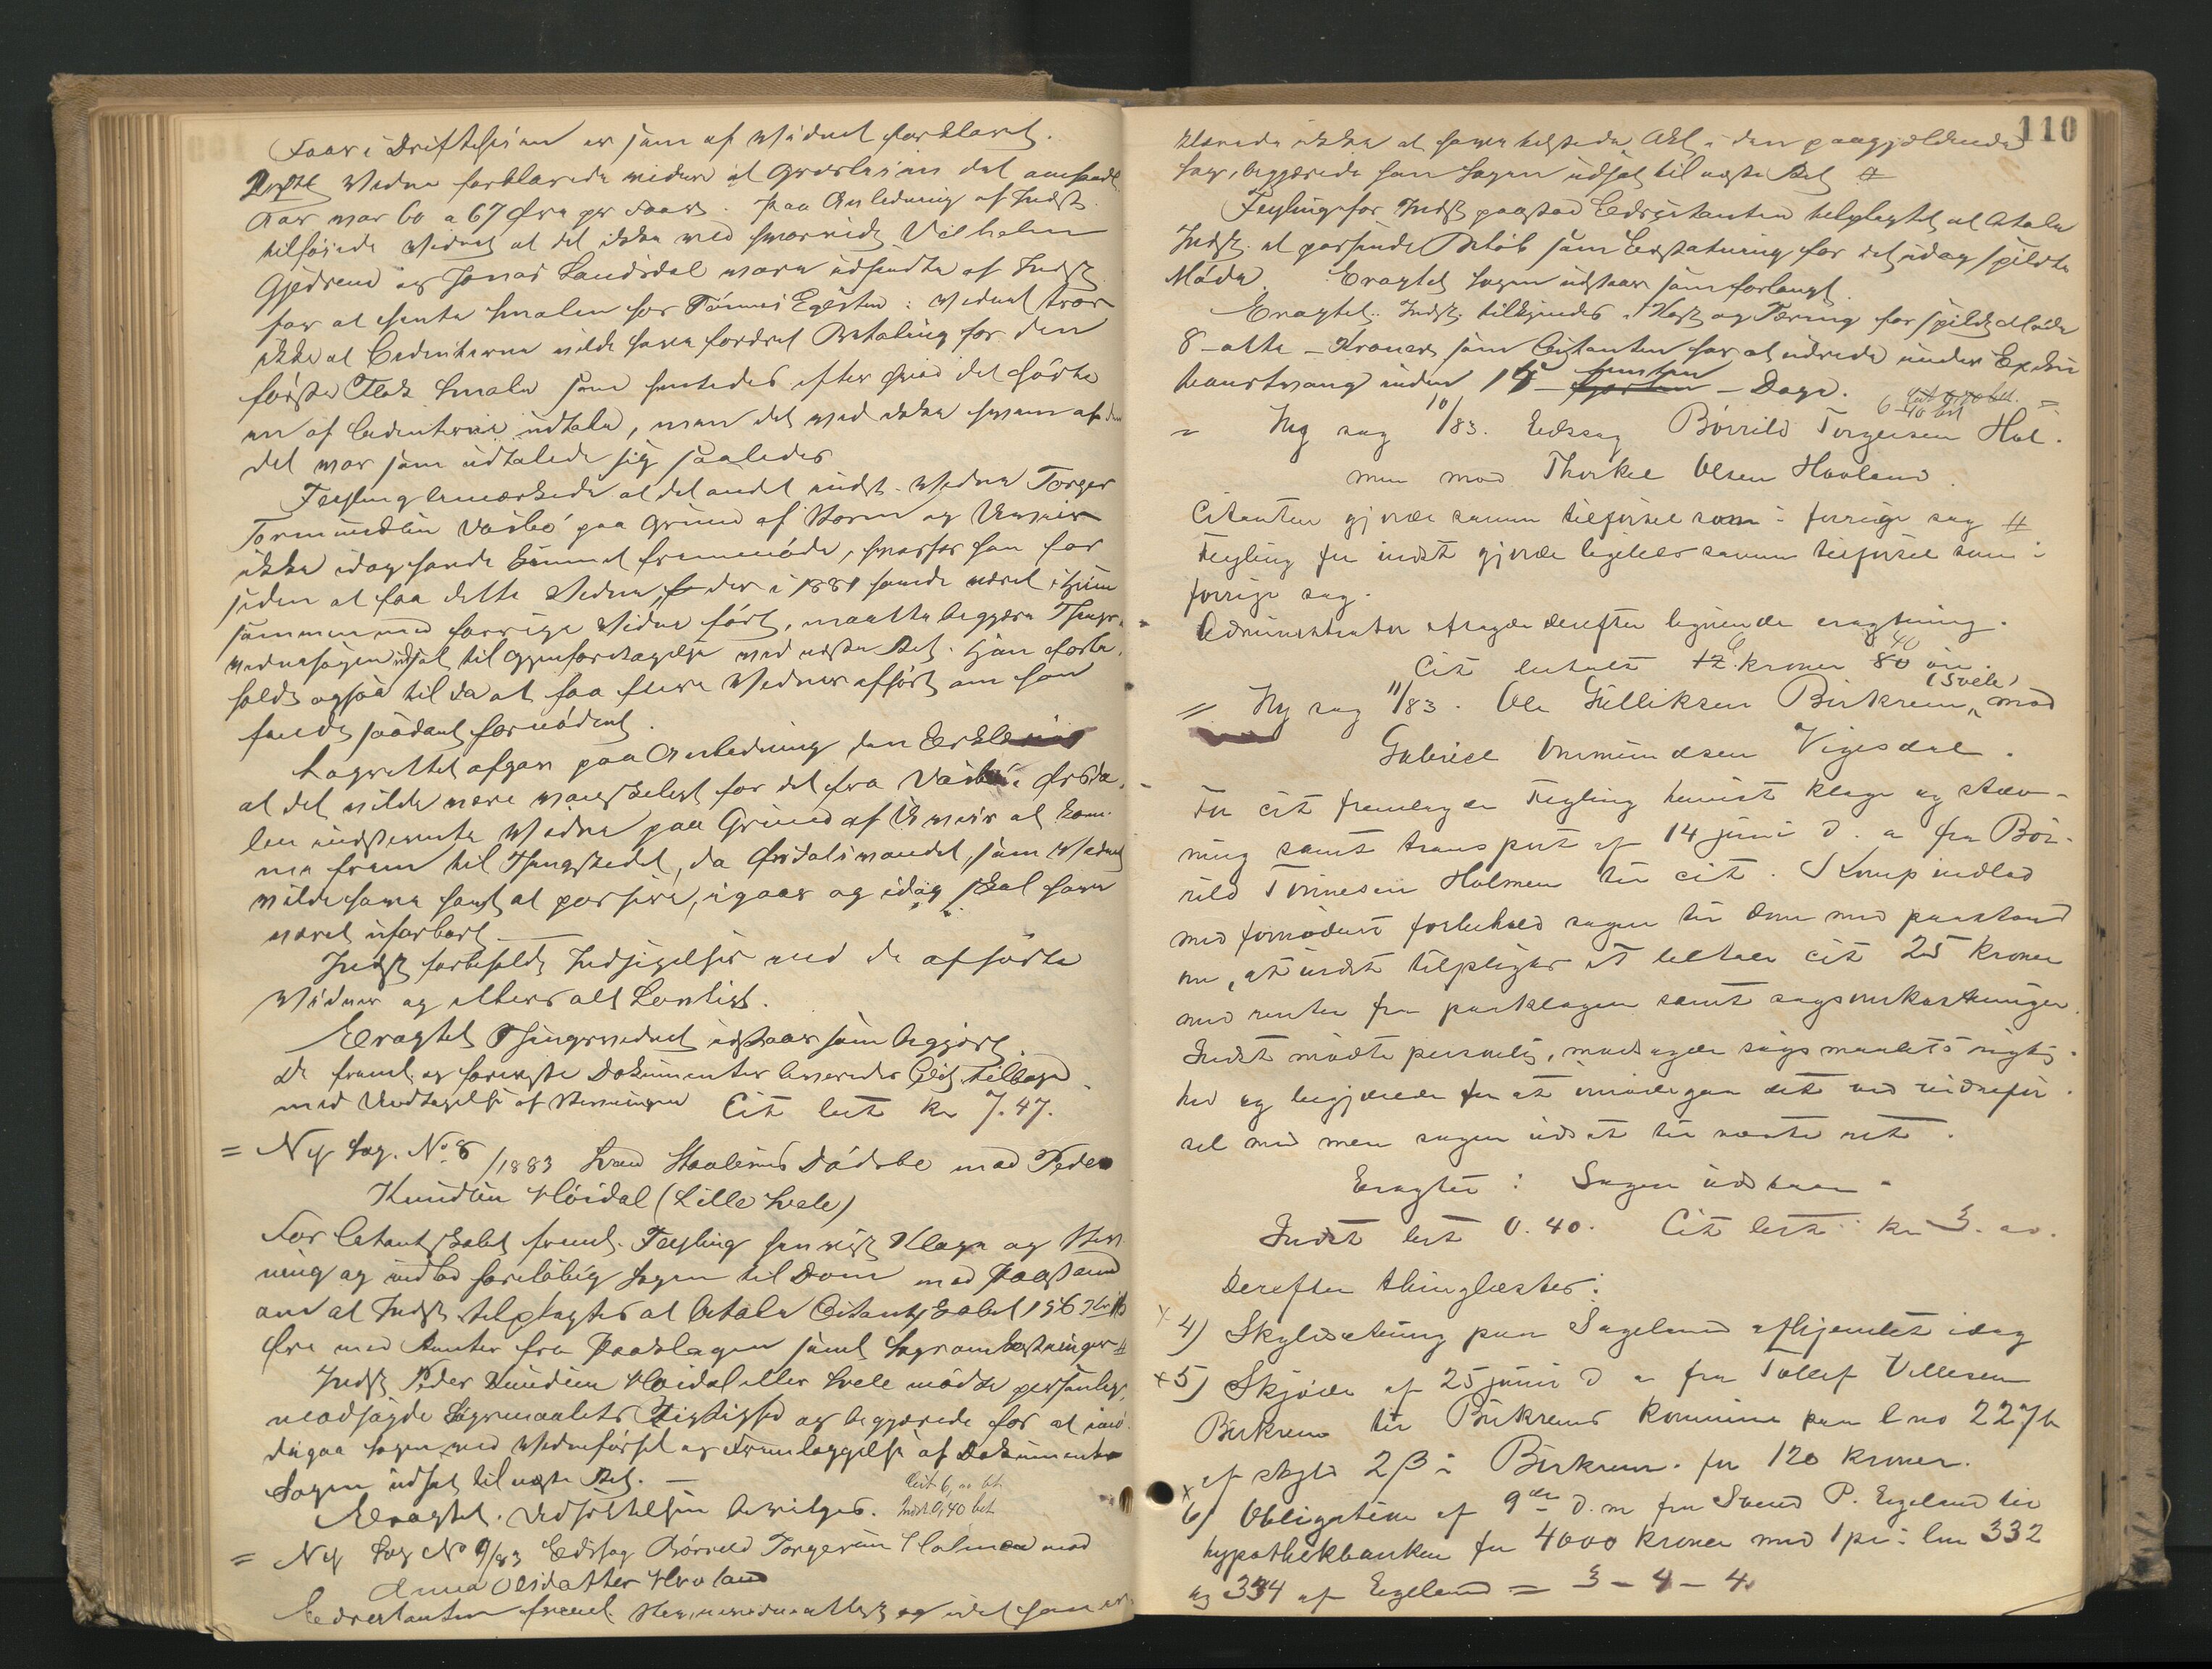 Faar i Driftshisen er som af Vidnet forklaret.
2det Vidne forklarede videre at Græsleien det omhandl.
Aar var 60 a 67 Øre pr Faar. Paa Anledning af Indst.
tilføiede Vidnet at det ikke ved hvorvidt Vilhelm
Gjedrem og Jonas Landsdal vare udsendte af Indst.
for at hente Smalen hos Tønnes Egesten: Vidnet tror
ikke at Citanterne vilde have fordret Betaling for den
første Flok Smale som hentedes efter hvad det hørte
en af Citanterne udtale, men det ved ikke hvem af dem
det var som udtalede sig saaledes
Feyling bemærkede at det andet indst. Vidne Torger
Tormundsen Vasbø paa Grund af Storm og Uveir
ikke idag havde kunnet fremmøde, hvorfor han for
siden at faa dette Vidne, der i 1881 havde været i
sammen med forrige Vidne ført, maatte begjære Things-
vidnesagen udsat til Gjenforetagelse ved næste Ret. Han forbe-
holdt ogsaa til da at faa flere Vidner afhørt om han
fandt saadant fornødent.
Lagrettet afgav paa Anledning den Erklæring
at det vilde være vanskeligt for det fra Vasbø i Ørsda-
len indstevnte Vidne paa Grund af Uveir at kom-
me frem til Thingstedet, da Ørsdalsvandet, som Vidnet
vilde have havt at passere, igaar og idag skal have
været ufarbart.
Indst. forbeholdt Indsigelser ved de afhørte
Vidner og ellers alt Lovligt.
Eragtet Thingsvidnet udstaar som begjært.
De freml. og foreviste Dokumenter leveredes Cit. tilbage
med Undtagelse af Stevningen Cit bet kr 7.47.
= Ny Sag. No 8/1883 Svend Staalesens Dødsbo mod Peder
Knudsen Høidal (Lille Svele)
For Citantskabet freml. Feyling henvist Klage og Stev-
ning og indlod foreløbig Sagen til Dom med Paastand
om at Indst. tilpligtes at betale Citantskabet 196
Øre med Renter fra Paaklagen samt Sagsomkostninger #
Indst. Peder Knudsen Høidal eller Svele mødte personlig,
modsagde Søgsmaalets Rigtighed og begjærede for at imø-
degaa Sagen med Vidneførsel og Fremlæggelse af Dokumenter
Sagen udsat til næste Ret. —
Cit 6, bt.
Eragtet. Udsættelsen bevilges. Indst 0,40 bet
= Ny Sag No 9/83 Edssag Børrild Torgersen Holmen mod
Anna Olsdatter Hovland
Edscitanten freml. og idet han er-
110
klærede ikke at have Akt i den paagjældende
Sag, begjærede han Sagen udsat til næste Ret #
Feyling for Indst. paastod Edscitanten tilpligtet at betale
Indst. et passende Beløb som Erstatning for det idag spildte
Møde. Eragtet Sagen udstaar som forlangt.
Eragtet. Indst. tilkjendes i Kost og Tæring for spildt Møde
8 – otte – Kroner som Citanten har at udrede under Exeku-
tionstvang inden 15 – femten – Dage.
= Ny sag 10/83. Edssag Børrild Torgersen Hol-
men mod Thorkel Olsen Hovland.
Citanten gjorde samme tilførsel som i forrige sag #
Feyling for indst gjorde ligeledes samme tilførsel som i
forrige sag.
Administrator afsagde derefter lignende eragtning.
Cit betalt 6 kroner 40 øre.
(Svele)
= Ny sag 11/83. Ole Gulliksen Birkrem mod
Gabriel Ommundsen Vigesdal.
For cit fremlagde Feyling henvist klage og stæv-
ning samt transport af 14 juni d. a fra Bør-
rild Tønnesen Holmen til cit. Komp indlod
med fornødent forbehold sagen til dom med paastand
om, at indst tilpligtes at betale cit 25 kroner
med renter fra paaklagen samt sagsomkostninger.
Indst mødte personlig, modsagde søgsmaalets rigtig-
hed og begjærede for at imødegaa det ved vidnefør-
sel med mere sagen udsat til næste ret.
Eragtet: Sagen udstaar.
Indst bet 0.40. Cit bet kr 3.
Derefter thinglæstes:
× 4) Skyldsætning paa Sageland afhjemlet idag
× 5) Skjøde af 25 juni d a fra Tollef Villesen
Birkrem til Birkrems kommune paa l no 227 b
af skyld 2 β i Birkrem for 120 kroner.
× 6) Obligation af 9de d. m fra Svend P. Eegeland til
hypothekbanken for 4000 kroner med 1 pr i lno 332
og 334 af Eegeland = 3 – 4 – 4